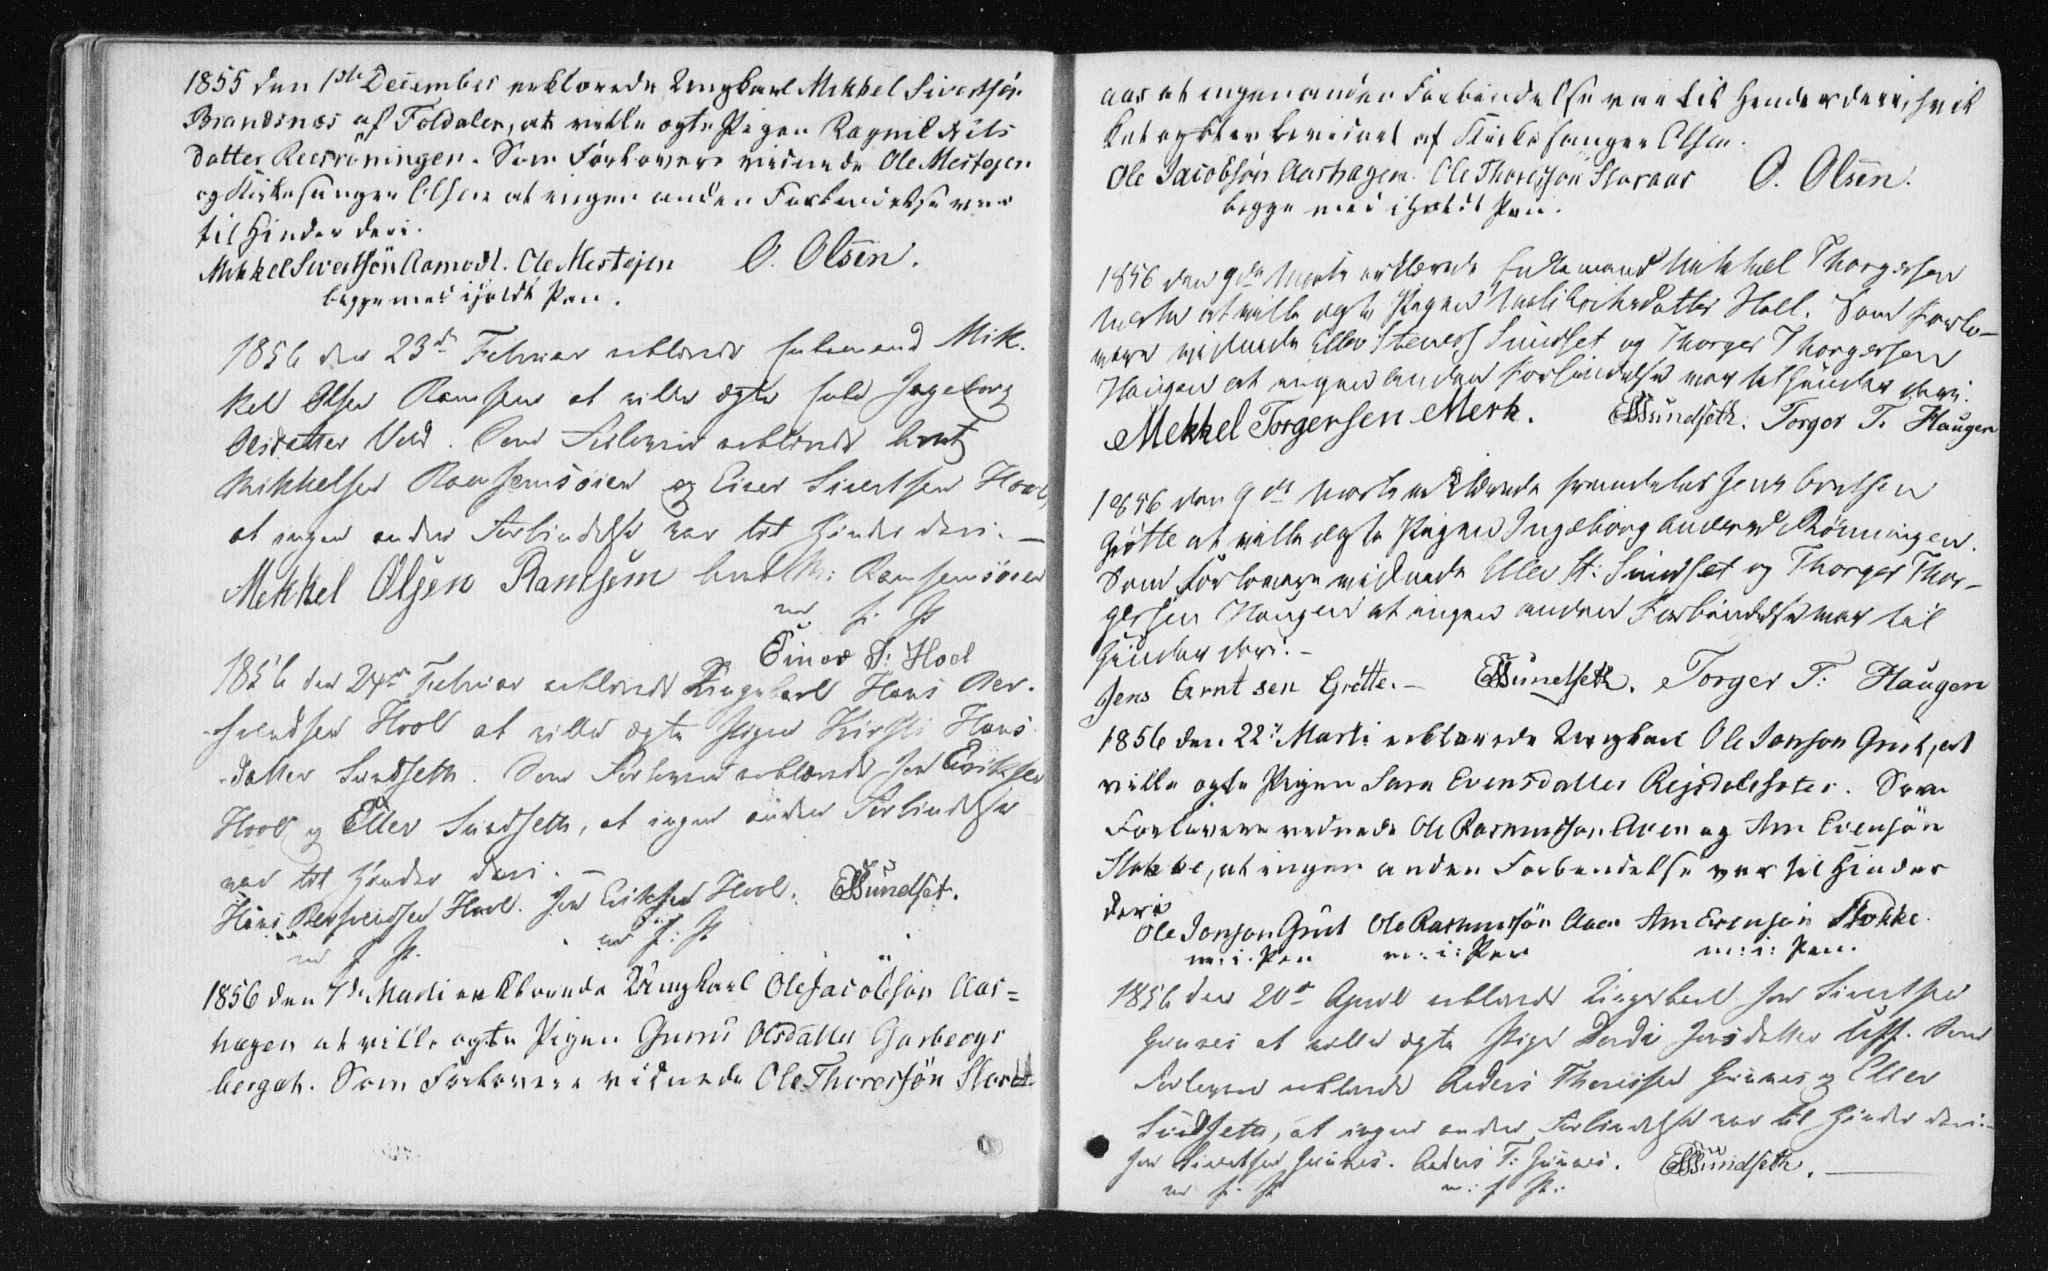 1855 den 1ste December erklærede Ungkarl Mikkel Sivertsön
Brandsnæs af Foldalen, at ville ægte Pigen Ragnil Nils
datter Recsröningen. Som Forlovere vidnede Ole Mestejen
og Kirkesanger Olsen at ingen anden Forbindelse var
til Hinder deri.
Mikkel Sivertsön Aamodt. Ole Mestejen O. Olsen.
begge med iholdt Pen.
1856 den 23de Februar erklærede Enkemand Mik-
kel Olsen Ramsem at ville ægte Enke Ingeborg
Olsdatter Vold. Som Forlovere erklærede Arnt
Mikkelsen Ramsemsöien og Einer Sivertsen Hoel,
at ingen anden Forbindelse var til Hinder deri. —
Mekkel Olsen Ramsem Arnt M: Ramsemsöien
m i P
Einar S: Hoel
1856 den 24de Februar erklærede Ungkarl Hans Ber-
svendsen Hool at ville ægte Pigen Kirsti Hans
datter Sundseth. Som Forlovere erklærede Jon Eriksen
Hool og Eller Sundseth, at ingen anden Forbindelse
var til Hinder deri. —
Hans Bersvendsen Hool. Jon Eriksen Hool. ESundset.
m i P. m i: P.
1856 den 7de Marti erklærede Ungkarl Ole Jacobsön Aas=
hagen at ville ægte Pigen Guru Olsdatter Garbergs
berget. Som Forlovere vidnede Ole Thoresjön Stor
aas at ingen anden Forbindelse var til Hinder deri, hvil
ket ogsaa bevidnet af Kirkesanger Olsen.
Ole Jacobsön Aashagen. Ole Thoresjön Storaas O. Olsen.
begge med iholdt Pen.
1856 den 9de Marts erklærede Enkemand Mikkel Thorgersen
Merk at ville ægte Pigen Marit Eriksdatter Hall. Som Forlo-
vere vidnede Eller Steners Sundset og Thorger Thorgersen
Haugen at ingen anden Forbindelse var til Hinder deri.
Mekkel Torgersen Merk. ESundseth. Torger T. Haugen
1856 den 9de Marts erklærede Jens Arntsen
Grötte at ville ægte Pigen Ingeborg Andersd Rönningen.
Som Forlovere vidnede Eller St: Sundset og Thorger Thor-
gersen Haugen at ingen anden Forbindelse var til
Hinder deri. —
Jens Arntsen Grötte. — ESundseth. Torger T: Haugen
1856 den 22de Marti erklærede Ungkarl Ole Jonson Gust, at
ville ægte Pigen Sara Evensdatter Rejsdaleseter. Som
Forlovere vednede Ole Rasmussön Aven og Am Evensön
Stokke, at ingen anden Forbendelse var til Hinder
deri
Ole Jonson Gust Ole Rasmussön Aven Am Evensön Stokke.
m: i: Pen m: i: Pen m: i: Pen.
1856 den 20de April erklærede Ungkarl Jon Sivertsen
Gunnes at ville ægte Pige Dordi Jonsdatter Uff. Som
Forlovere erklærede Anders Thoressen Gunnes og Eller
Sundseth, at ingen anden Forbindelse var til Hinder deri. —
Jon Sivertsen Gunnes. Anders T: Gunnes. ESundseth. —
m i P m: i P: